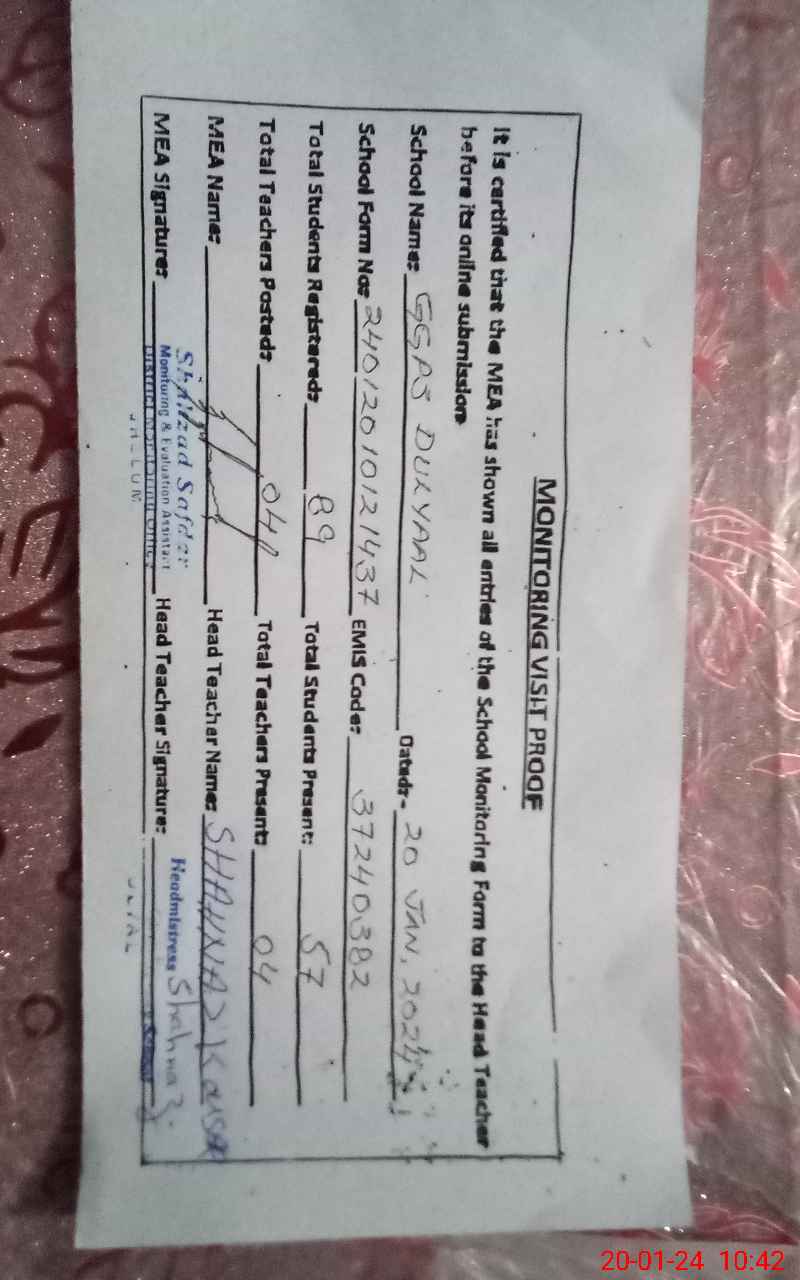 MONITORING VISIT PROOF
It is certified that the MEA has shown all entries of the School Monitoring Form to the Head Teacher
before its online submission
School Name: GGPS DURYAAL Dated:- 20 JAN, 2024
School Form No: 24012010121437 EMIS Code: 37240382
Total Students Registered: 89 Total Students Present: 57
Total Teachers Posted: 04 Total Teachers Present: 04
MEA Name: Head Teacher Name: SHAHNAZ Kausar
Shahzad Safdar
MEA Signature: Monitoring & Evaluation Assistant Head Teacher Signature: Headmistress Shahnaz
District Monitoring Office
JHELUM
20-01-24 10:42